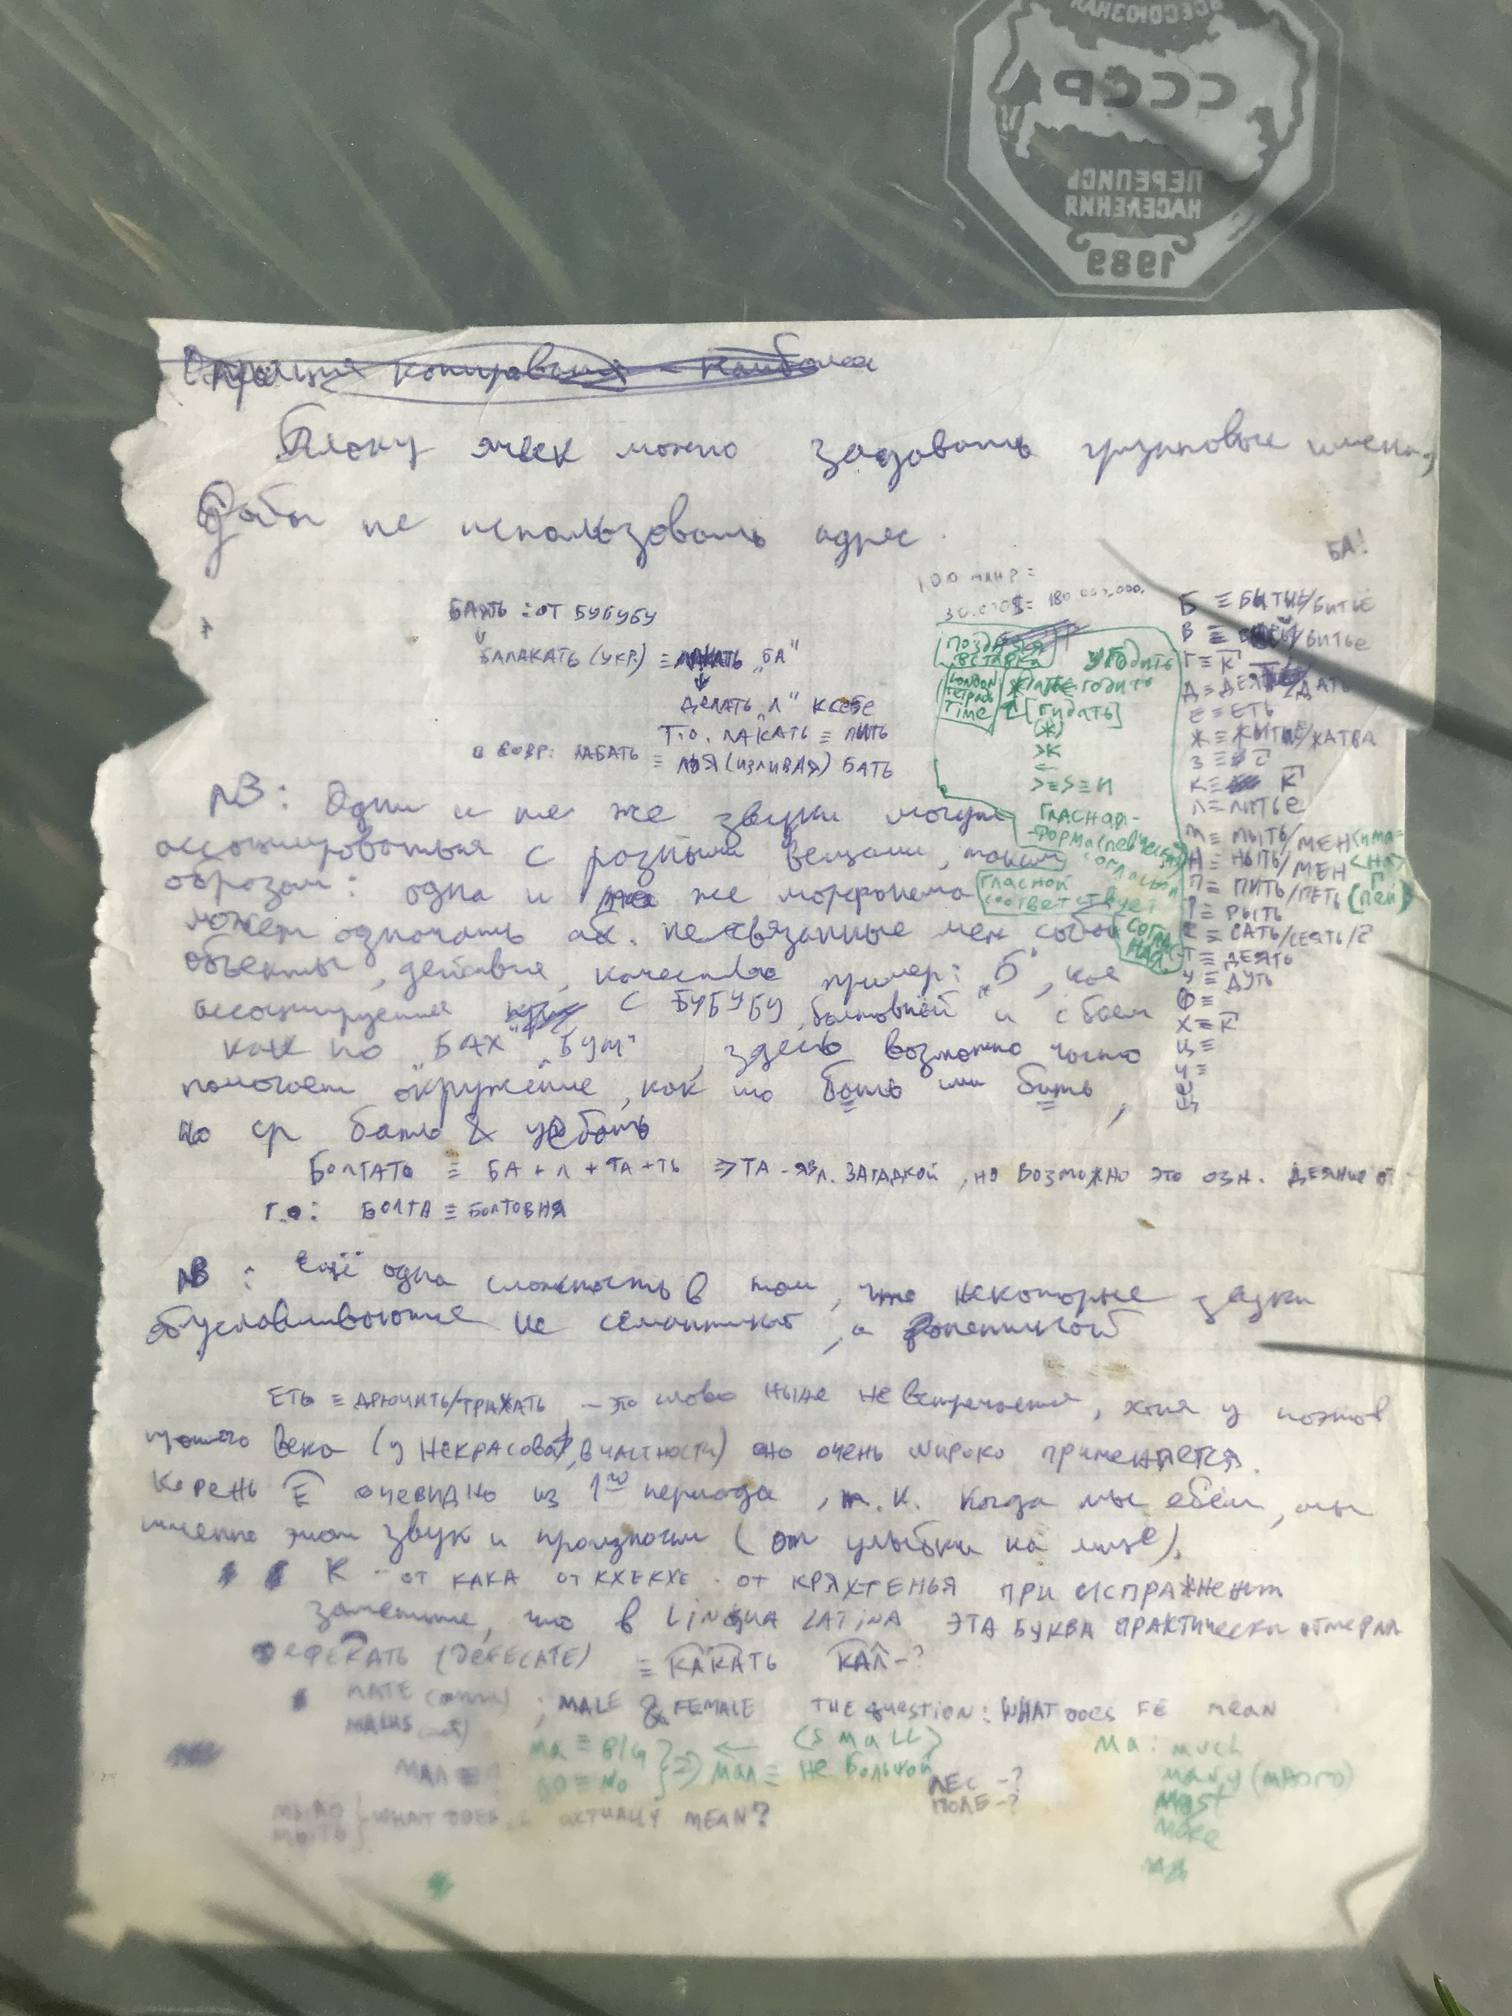 ВСЕСОЮЗНАЯ
СССР
ПЕРЕПИСЬ
НАСЕЛЕНИЯ
1989
копирования
Блоку ячеек можно задавать групповые имена,
дабы не использовать адрес.
БА!
100 =
30.000$ = 180 000,000.
БАЯТЬ : ОТ БУБУБУ
БАЛАКАТЬ (УКР.) ≡ ЛАКАТЬ „БА"
↓
ДЕЛАТЬ „Л" К СЕБЕ
Т.О. ЛАКАТЬ ≡ ПИТЬ
ЛАБАТЬ ≡ ЛЬЯ (ИЗЛИВАЯ) БАТЬ
ПОЗДНЯЯ
ВСТАВКА
LONDON
ТЕТРАДЬ
TIME
УГОДИТЬ
ГОДИТЬ
[ГИДАТЬ]
(Ж)
>К
←
>≡S≡И
ГЛАСНАЯ-
-ФОРМА (ПЕВЧЕСКАЯ)
ГЛАСНОЙ
СООТВЕТСТВУЕТ
СОГЛАС
НАЯ
Б ≡ БЫТЬЕ/БИТЬЕ
В ≡ /ВИТЬЕ
Г ≡ К
Д ≡ ДЕЯТЬ/ДАТЬ
Е ≡ ЕТЬ
Ж ≡ ЖЫТИЕ/ЖАТВА
З ≡ С
К ≡ К
Л ≡ ЛИТЬЕ
М ≡ МЫТЬ/МЕН
Н ≡ НЫТЬ/МЕН
П ≡ ПИТЬ/ПЕТЬ (ПЕЙ)
Р ≡ РЫТЬ
С ≡ САТЬ/СЕЯТЬ/
Т ≡ ДЕЯТЬ
У ≡ ДУТЬ
Ф ≡
Х ≡ К
Ц ≡
Ч ≡
Щ
NB: Одни и те же звуки могут
ассоциироваться с разными вещами, таким
образом: одна и та же морфонема
может означать абс. несвязанные меж собой
объекты, действия, качества пример: „Б", кое
ассоциируется с БУБУБУ, болтовнёй и с боем
как по „БАХ" „БУМ", здесь возможно часто
помогает окружение, как то бать или бить,
но ср бать & убать
БОЛТАТЬ ≡ БА + Л + ТА + ТЬ ⇒ ТА - ЯВЛ. ЗАГАДКОЙ, НО ВОЗМОЖНО ЭТО ОЗН. ДЕЯНИЕ ОТ
Т.О: БОЛТА ≡ БОЛТОВНЯ
NB : Ещё одна сложность в том, что некоторые звуки
обуславливаются не семантикой, а фонетикой
ЕТЬ ≡ ДРЮЧИТЬ/ТРАХАТЬ - это слово ныне не встречается, хотя у поэтов
прошлого века (у НЕКРАСОВА, В ЧАСТНОСТИ) оно очень широко применяется.
Корень Е очевидно из 1го периода, т.к. когда мы ебём, мы
именно этот звук и произносим (от улыбки на лице).
К - ОТ КАКА ОТ КХЕКХЕ - ОТ КРЯХТЕНЬЯ ПРИ ИСПРАЖНЕНИИ
заметьте, что в LINGUA LATINA ЭТА БУКВА ПРАКТИЧЕСКИ отмерла
(DEFECATE) ≡ КАКАТЬ КАЛ - ?
MATE ; MALE & FEMALE THE QUESTION: WHAT DOES FE MEAN
MALUS
МАЛ ≡
МА ≡ BIG } ⇒ ← (SMALL)
≡ NO } МАЛ ≡ НЕ БОЛЬШОЙ
МЫЛО } WHAT DOES L ACTUALLY MEAN?
МЫТЬ
ЛЕС - ?
ПОЛЕ - ?
МА: much
many (МНОГО)
Most
More